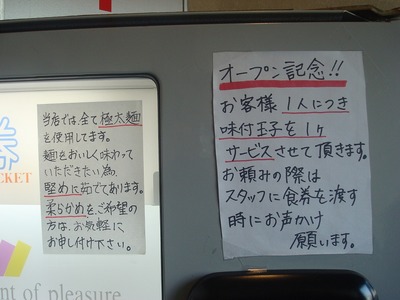 当店では、全て極太麺
を使用してます。
麺をおいしく味わって
いただきたい為、
堅めに茹でてあります。
柔らかめを、ご希望の
方は、お気軽に
お申し付け下さい。
オープン記念!!
お客様 1人につき
味付玉子を1ヶ
サービスさせて頂きます。
お頼みの際は
スタッフに食券を渡す
時にお声かけ
願います。
券
CKET
nt of pleasure